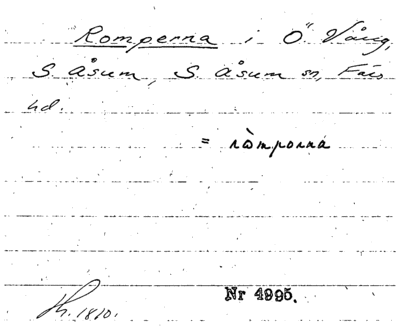 Romperna i Ö. Vång,
S. Åsum, S. Åsum sn, Färs
hd.
= ròmporna
Nr 4995.
1810.